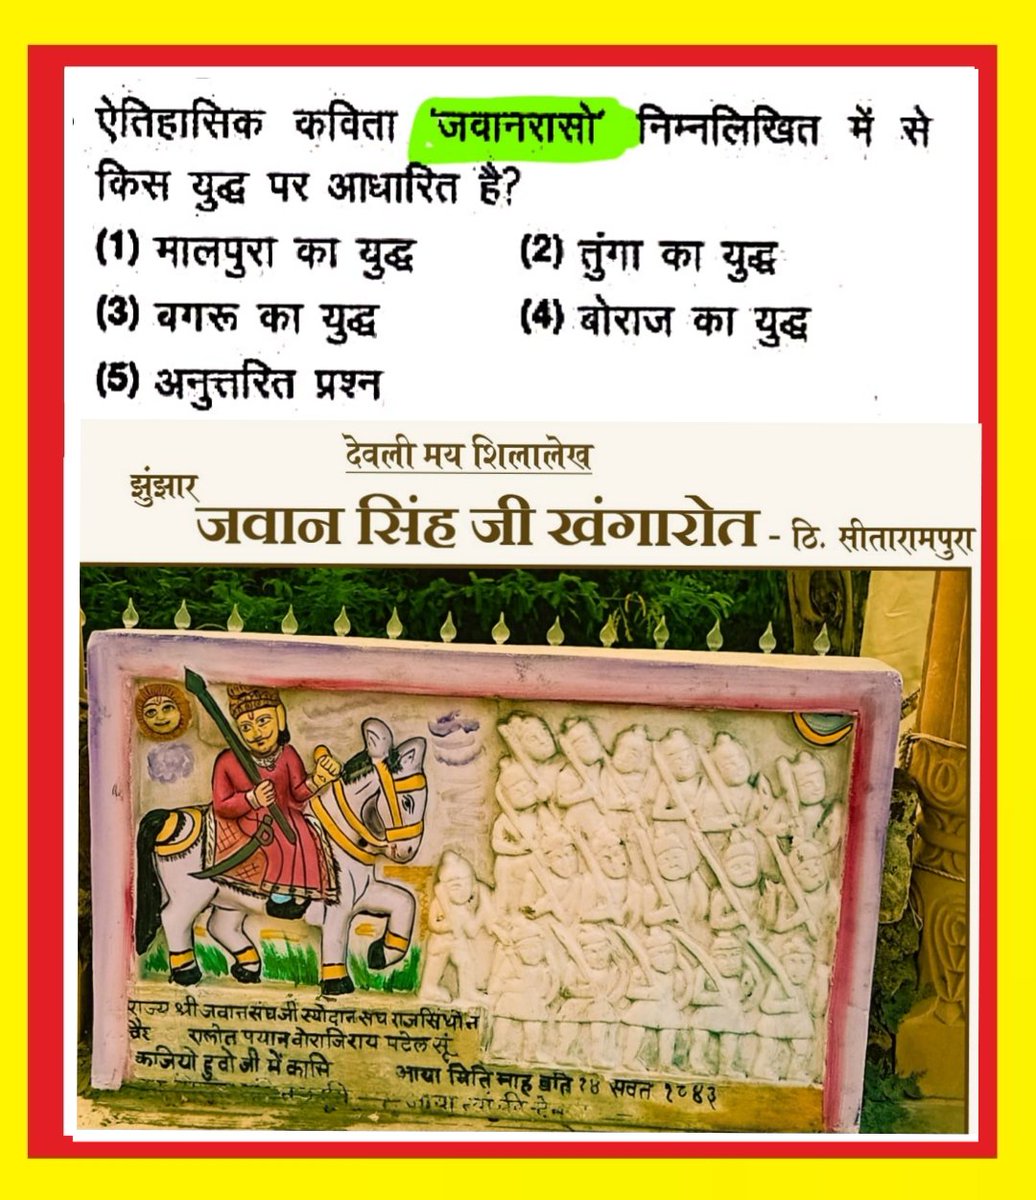 ऐतिहासिक कविता 'जवानरासो' निम्नलिखित में से
किस युद्ध पर आधारित है?
(1) मालपुरा का युद्ध (2) तुंगा का युद्ध
(3) बगरू का युद्ध (4) बोराज का युद्ध
(5) अनुत्तरित प्रश्न
देवली मय शिलालेख
झुंझार
जवान सिंह जी खंगारोत - ठि. सीतारामपुरा
राज्य श्री जवानसंघजी स्योदानसघ राजसिंघोन
पयान बोराजिराय पटेल सूं
कजियो हुवो जी में कासि आया मिति माह बति १४ सवत १८४३